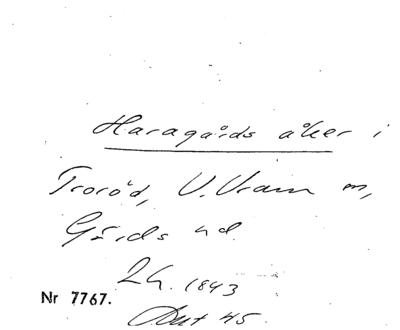 Haragårds åker i
Troröd, V. Vram m,
Gärds hd.
Lh. 1843
Nr 7767.
Aut 45.